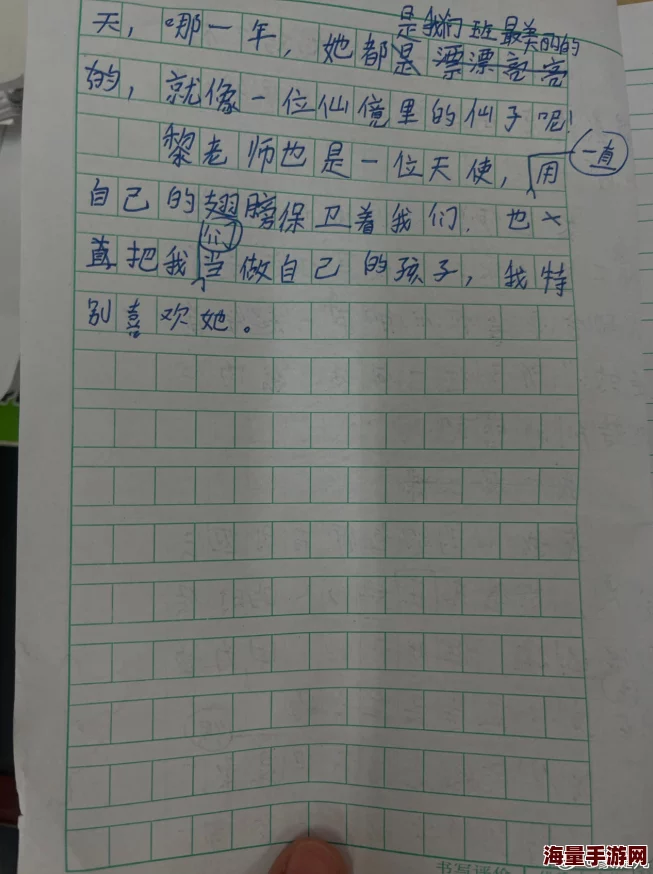 是我们班最美的的
天，哪一年，她都是漂漂亮亮
的，就像一位仙境里的仙子呢！
黎老师也是一位天使，用
一直
自己的翅膀保卫着我们.也一
们
直把我当做自己的孩子，我特
别喜欢她。
书写评价
海量手游网